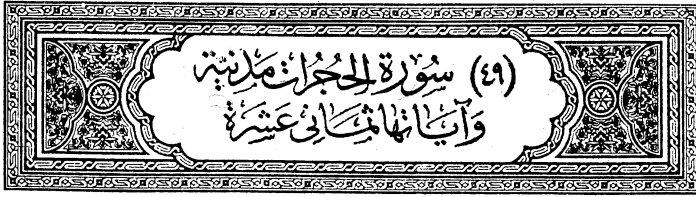 (٤٩) سُورَة الحُجُرات مَدَنيَّة
وَآيَاتها ثمَانى عَشَرَة